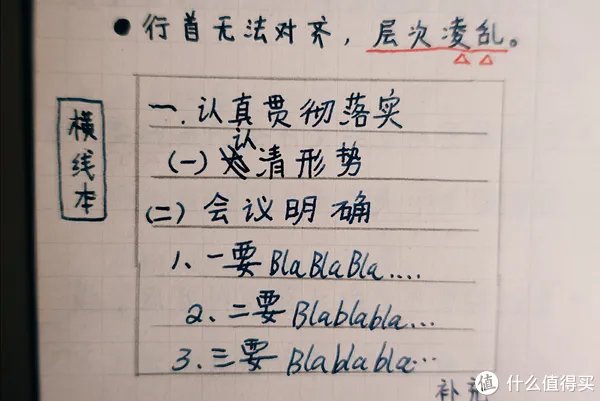 ●行首无法对齐，层次凌乱。
横线本
一.认真贯彻落实
(一)认清形势
(二)会议明确
1、一要BlaBlaBla....
2、二要Blablabla...
3.三要Blablabla...
补
值 什么值得买